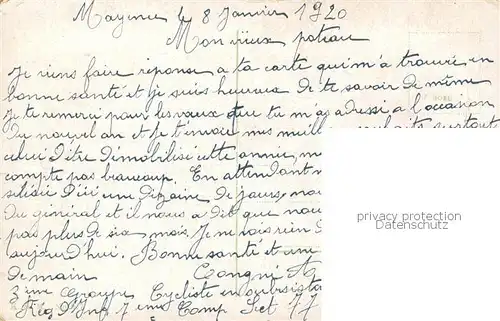 Mayence le 8 Janvier 1920
Mon vieux poteau
Je viens faire réponse a ta carte qui m'a trouvé en
bonne santé et je suis heureux de te savoir de même
Je te remerci pour les vœux que tu m'as adressé a l'occasion
Du nouvel an et Je t'envoie mes meill souhaits surtout
celui d'être démobilisé cette année, m
compte pas beaucoup. En attendant n
d'ici une dizaine de jours, nou
Du général et il nous a dit que nou
pas plus de six mois. Je ne vois rien
aujourd'hui. Bonne santé et une
de main
3ème Groupe Cycliste en subsista
Rég d'Inf 7ème Comp Sect 77
privacy protection
Datenschutz